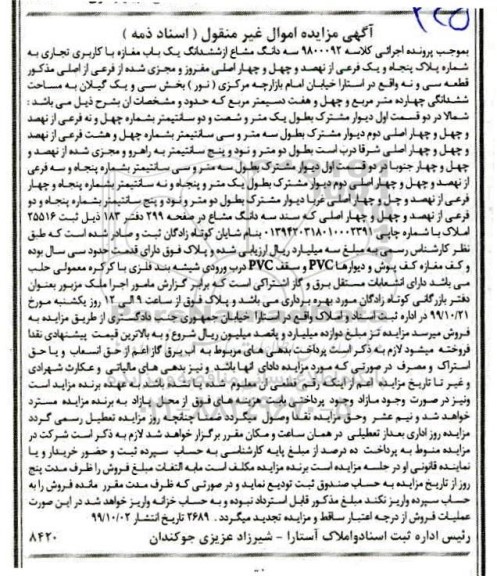 ۲۲۵
آگهی مزایده اموال غیر منقول ( اسناد ذمه )
بموجب پرونده اجرائی کلاسه ۹۸۰۰۰۹۲ سه دانگ مشاع ازششدانگ یک باب مغازه با کاربری تجاری به
شماره پلاک پنجاه و یک فرعی از نهصد و چهل و چهار اصلی مفروز و مجزی شده از فرعی از اصلی مذکور
قطعه سی و نه واقع در استارا خیابان امام بازارچه مرکزی ( نور ) بخش سی و یک گیلان به مساحت
ششدانگی چهارده متر مربع و چهل و هفت دسیمتر مربع که حدود و مشخصات ان بشرح ذیل می باشد :
شمالا در دو قسمت اول دیوار مشترک بطول یک متر و شصت و دو سانتیمتر بشماره چهل و نه فرعی از نهصد
و چهل و چهار اصلی دوم دیوار مشترک بطول سه متر و سی سانتیمتر بشماره چهل و هشت فرعی از نهصد
و چهل و چهار اصلی شرقا درب است بطول دو متر و نود و پنج سانتیمتر به راهرو و مجزی شده از نهصد و
چهل و چهار جنوبا در دو قسمت اول دیوار مشترک بطول سه متر و سی سانتیمتر بشماره پنجاه و سه فرعی
از نهصد و چهل و چهار اصلی دوم دیوار مشترک بطول یک متر و پنجاه و نه سانتیمتر بشماره پنجاه و چهار
فرعی از نهصد و چهل و چهار اصلی غربا دیوار مشترک بطول دو متر و نود و پنج سانتیمتر بشماره پنجاه و دو
فرعی از نهصد و چهل و چهار اصلی که سند سه دانگ مشاع در صفحه ۲۹۹ دفتر ۱۸۳ ذیل ثبت ۲۵۵۱۶
املاک با شماره چاپی ۰۱۳۹۴۲۰۳۱۸۰۱۰۰۰۲۳۹۱ بنام شایان کوتاه زادگان ثبت و صادر شده است که طبق
نظر کارشناس رسمی به مبلغ سه میلیارد ریال ارزیابی شده و پلاک فوق دارای قدمت حدود سی سال بوده
و کف مغازه کف پوش و دیوارها PVC و سقف PVC درب ورودی شیشه بند فلزی با کرکره معمولی حلب
می باشد دارای انشعابات مستقل برق و گاز اشتراکی است که برابر گزارش مامور اجرا ملک مزبور بعنوان
دفتر بازرگانی کوتاه زادگان مورد بهره برداری می باشد و پلاک فوق از ساعت ۹ الی ۱۲ روز یکشنبه مورخ
۹۹/۱۰/۲۱ در اداره ثبت اسناد و املاک واقع در استارا خیابان جمهوری جنب دادگستری از طریق مزایده به
فروش میرسد مزایده از مبلغ دوازده میلیارد و پانصد میلیون ریال شروع و به بالاترین قیمت پیشنهادی نقدا
فروخته میشود لازم به ذکر است پرداخت بدهی های مربوط به آب برق گاز اعم از حق انسعاب و یا حق
اشتراک و مصرف در صورتی که مورد مزایده دادای انها باشد و نیز بدهی های مالیاتی و عکارت شهرادی
و غیر تا تاریخ مزایده اعم از اینکه رقم قطعی ان معلوم شده باشد یا نشده باشد به عهده برنده مزایده است
ونیز در صورت وجود مازاد وجود پرداختی بابت هزینه های فوق از محل مازاد به برنده مزایده مسترد
خواهد شد و نیم عشر وحق مزایده نقدا وصول میگردد ضمنا چنانچه روز مزایده تعطیل رسمی گردد
مزایده روز اداری بعداز تعطیلی در همان ساعت و مکان مقرر برگزار خواهد شد لازم به ذکر است شرکت در
مزایده منوط به پرداخت ده درصد از مبلغ پایه کارشناسی به حساب سپرده ثبت و حضور خریدار و یا
نماینده قانونی او در جلسه مزایده است برنده مزایده مکلف است مابه التفات مبلغ فروش را ظرف مدت پنج
روز از تاریخ مزایده به حساب صندوق ثبت تودیع نماید و در صورتی که ظرف مدت مقرر مانده فروش را به
حساب سپرده واریز نکند مبلغ مذکور قابل استرداد نبوده و به حساب خزانه واریز خواهد شد در این صورت
عملیات فروش از درجه اعتبار ساقط و مزایده تجدید میگردد . ۲۶۸۹ تاریخ انتشار ۹۹/۱۰/۰۲
رئیس اداره ثبت اسنادواملاک آستارا - شیرزاد عزیزی جوکندان ۸۴۲۰